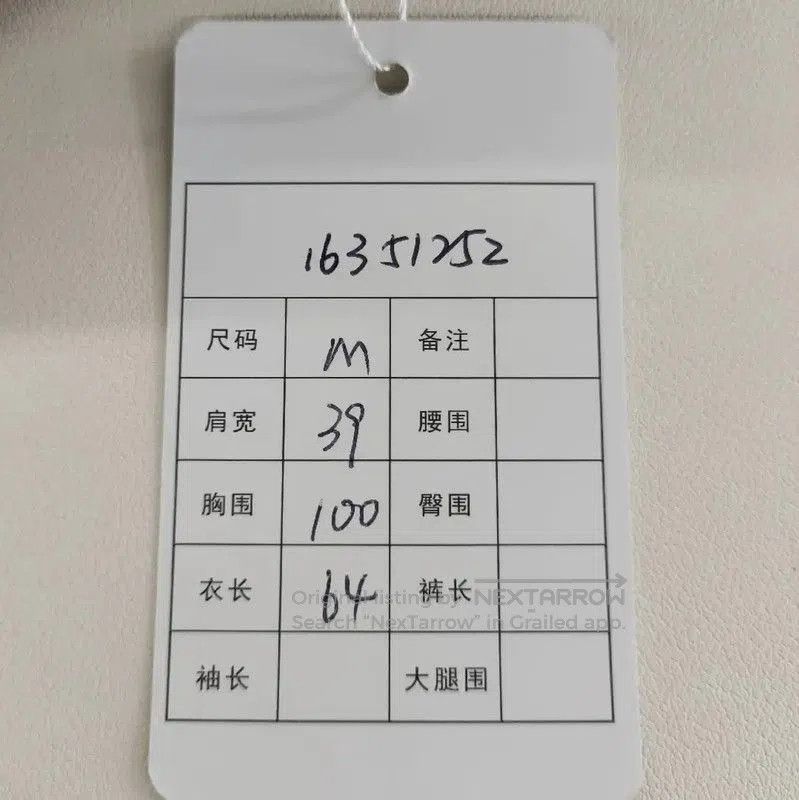 16351252
尺码 M 备注
肩宽 39 腰围
胸围 100 臀围
衣长 64 裤长
Original listing by NEXTARROW
Search “NexTarrow” in Grailed app.
袖长 大腿围